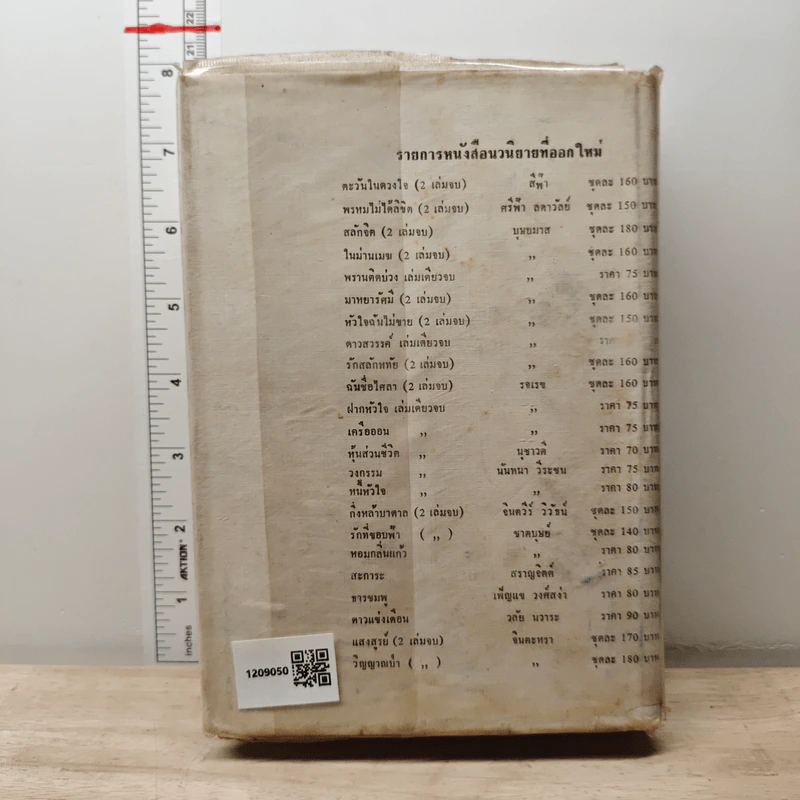 รายการหนังสือนวนิยายที่ออกใหม่
ตะวันในดวงใจ (2 เล่มจบ) สีฟ้า ชุดละ 160 บาท
พรหมไม่ได้ลิขิต (2 เล่มจบ) ศรีฟ้า ลดาวัลย์ ชุดละ 150 บาท
สลักจิต (2 เล่มจบ) บุษยมาส ชุดละ 180 บาท
ในม่านเมฆ (2 เล่มจบ) ,, ชุดละ 160 บาท
พรานติดบ่วง เล่มเดียวจบ ,, ราคา 75 บาท
มาหยารัศมี (2 เล่มจบ) ,, ชุดละ 160 บาท
หัวใจฉันไม่ขาย (2 เล่มจบ) ,, ชุดละ 150 บาท
ดาวสวรรค์ เล่มเดียวจบ ,,
รักสลักหทัย (2 เล่มจบ) ,, ชุดละ 160 บาท
ฉันชื่อไศลา (2 เล่มจบ) รจเรข ชุดละ 160 บาท
ฝากหัวใจ เล่มเดียวจบ ,, ราคา 75 บาท
เครือออน ,, ,, ราคา 75 บาท
หุ้นส่วนชีวิต ,, นุชาวดี ราคา 70 บาท
วงกรรม ,, นันทนา วีระชน ราคา 75 บาท
หนี้หัวใจ ,, ,, ราคา 80 บาท
กิ่งหล้าบาดาล (2 เล่มจบ) จินตวีร์ วิวัธน์ ชุดละ 150 บาท
รักที่ขอบฟ้า ( ,, ) ชาตบุษย์ ชุดละ 140 บาท
หอมกลิ่นแก้ว ,, ราคา 80 บาท
สะการะ สราญจิตต์ ราคา 85 บาท
ธารชมพู เพ็ญแข วงศ์สง่า ราคา 80 บาท
ดาวแข่งเดือน วลัย นวาระ ราคา 90 บาท
แสงสูรย์ (2 เล่มจบ) จินตะหรา ชุดละ 170 บาท
วิญญาณป่า ( ,, ) ,, ชุดละ 180 บาท
1209050
22
21
8
7
6
5
4
3
2
1
AKTION
inches